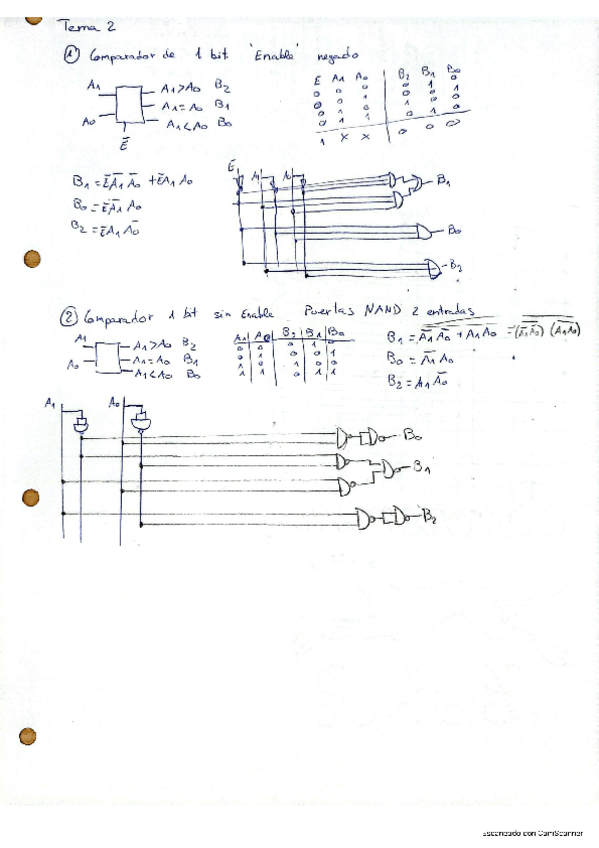 Tema 2
① Comparador de 1 bit 'Enable' negado
A1 A1>A0 B2
A1=A0 B1
A0 A1<A0 B0
E̅
E A1 A0 B2 B1 B0
0 0 0 0 1 0
1 X X 0 0 0
B1 = E̅ A̅1 A̅0 + E̅ A1 A0
B0 = E̅ A̅1 A0
B2 = E̅ A1 A̅0
E̅ A1 A0
B1
B0
B2
② Comparador 1 bit sin Enable Puertas NAND 2 entradas
A1 A1>A0 B2
A0 A1=A0 B1
A1<A0 B0
A1 A0 B2 B1 B0
B1 = A̅1 A̅0 + A1 A0 =
B0 = A̅1 A0
B2 = A1 A̅0
A1 A0
B0
B1
B2
Escaneado con CamScanner